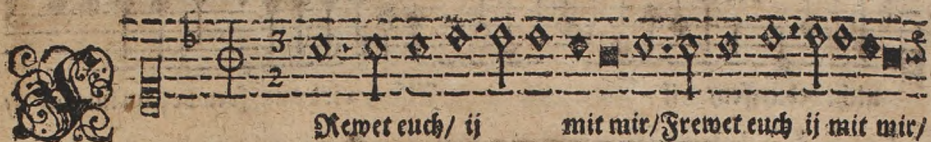 3
2
FRewet euch/ ij mit mir/Frewet euch ij mit mir/